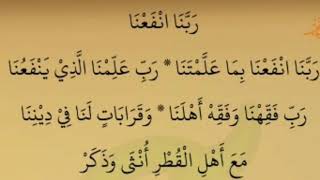 رَبَّنَا انْفَعْنَا
رَبَّنَا انْفَعْنَا بِمَا عَلَّمْتَنَا * رَبِّ عَلِّمْنَا الَّذِيْ يَنْفَعُنَا
رَبِّ فَقِّهْنَا وَفَقِّهْ أَهْلَنَا * وَقَرَابَاتٍ لَنَا فِيْ دِيْنِنَا
مَعَ أَهْلِ الْقُطْرِ أُنْثَى وَذَكَرْ